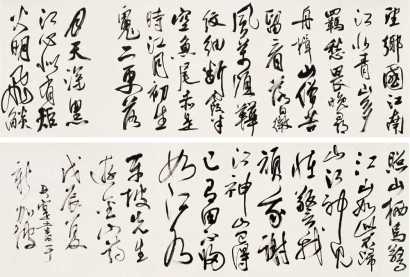 望鄉國江南
江北青山多
羈愁畏晚尋
舟楫山僧苦
留看落日微
風萬頃靴
紋細斷霞半
空魚尾赤是
時江月初生
魄二更落
月天深黑
江心似有炬
火明飛焰
照山棲鳥驚
江山如此不歸
山江神見
怪驚我
頑我謝
江神豈得
已有田不歸
如江水
東坡先生
遊金山詩
戊辰夏